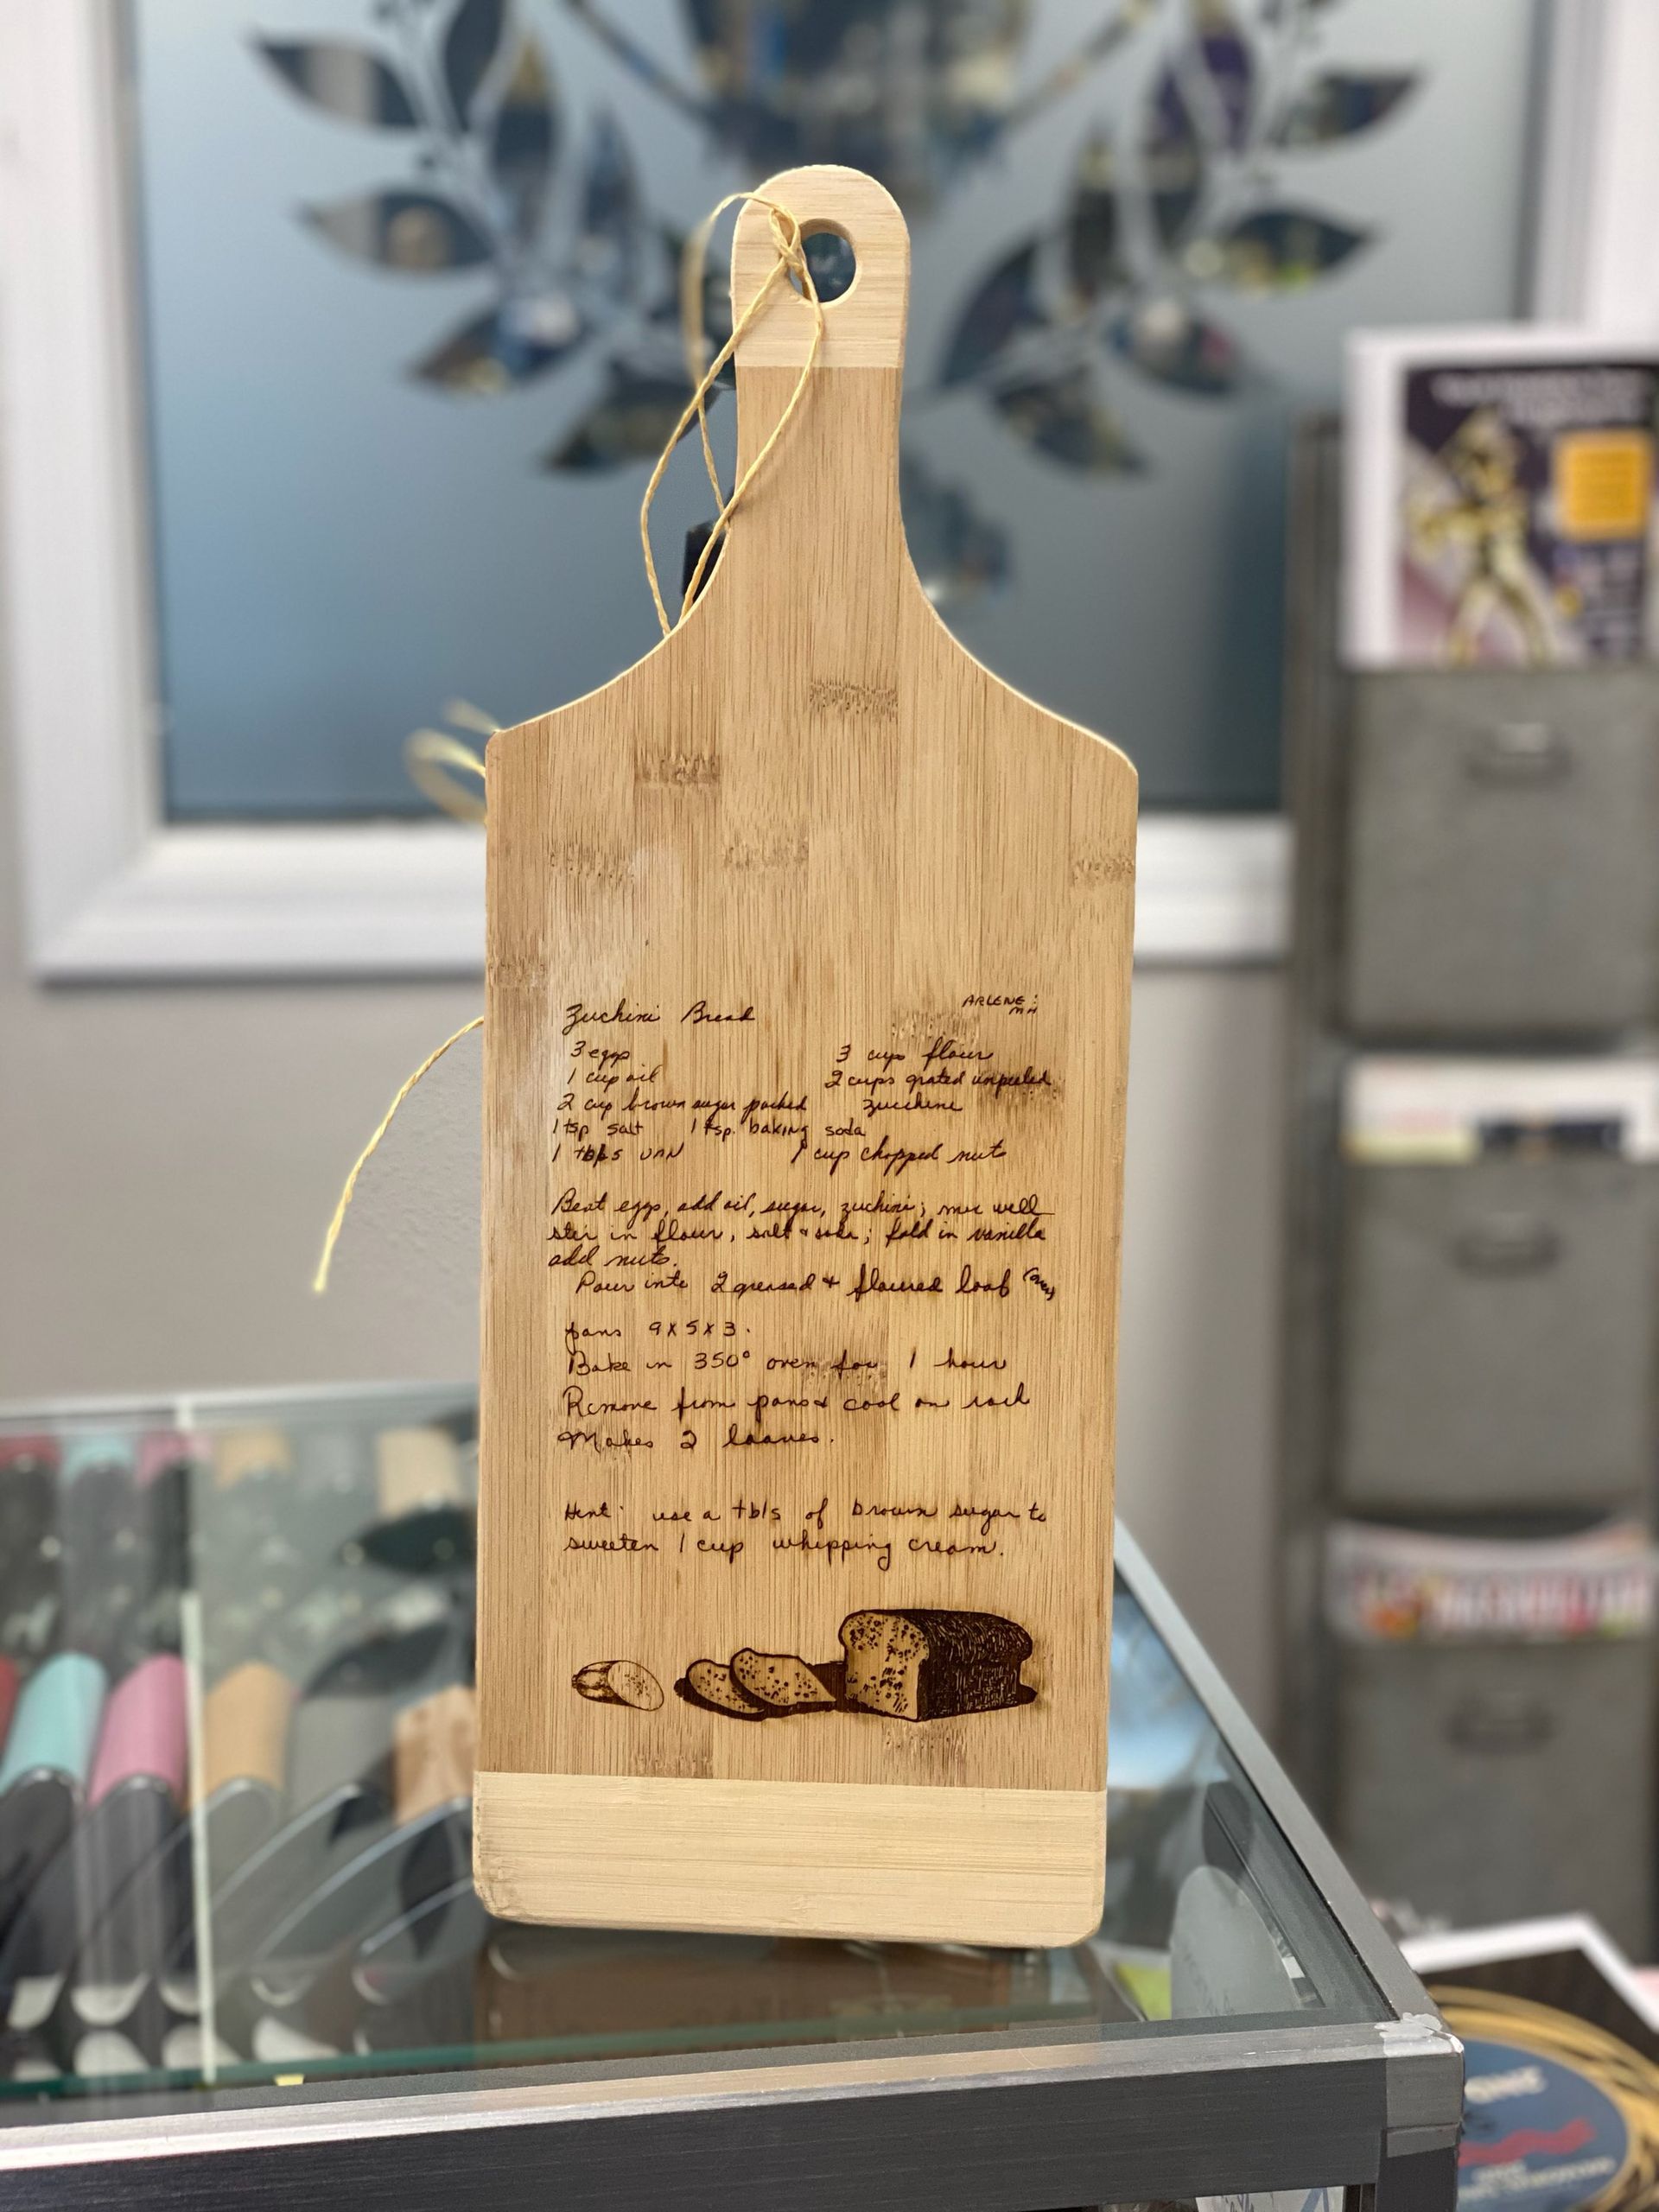 Zuchini Bread
ARLENE:
MH
3 eggs 3 cups flour
1 cup oil 2 cups grated unpeeled
2 cup brown sugar packed zucchini
1 tsp salt 1 tsp. baking soda
1 tbls VAN 1 cup chopped nuts
Beat eggs, add oil, sugar, zuchini; mix well
stir in flour, salt & soda; fold in vanilla
add nuts.
Pour into 2 greased & floured loaf
pans 9x5x3.
Bake in 350° oven for 1 hour
Remove from pans & cool on rack
Makes 2 loaves.
Hint: use a tbls of brown sugar to
sweeten 1 cup whipping cream.